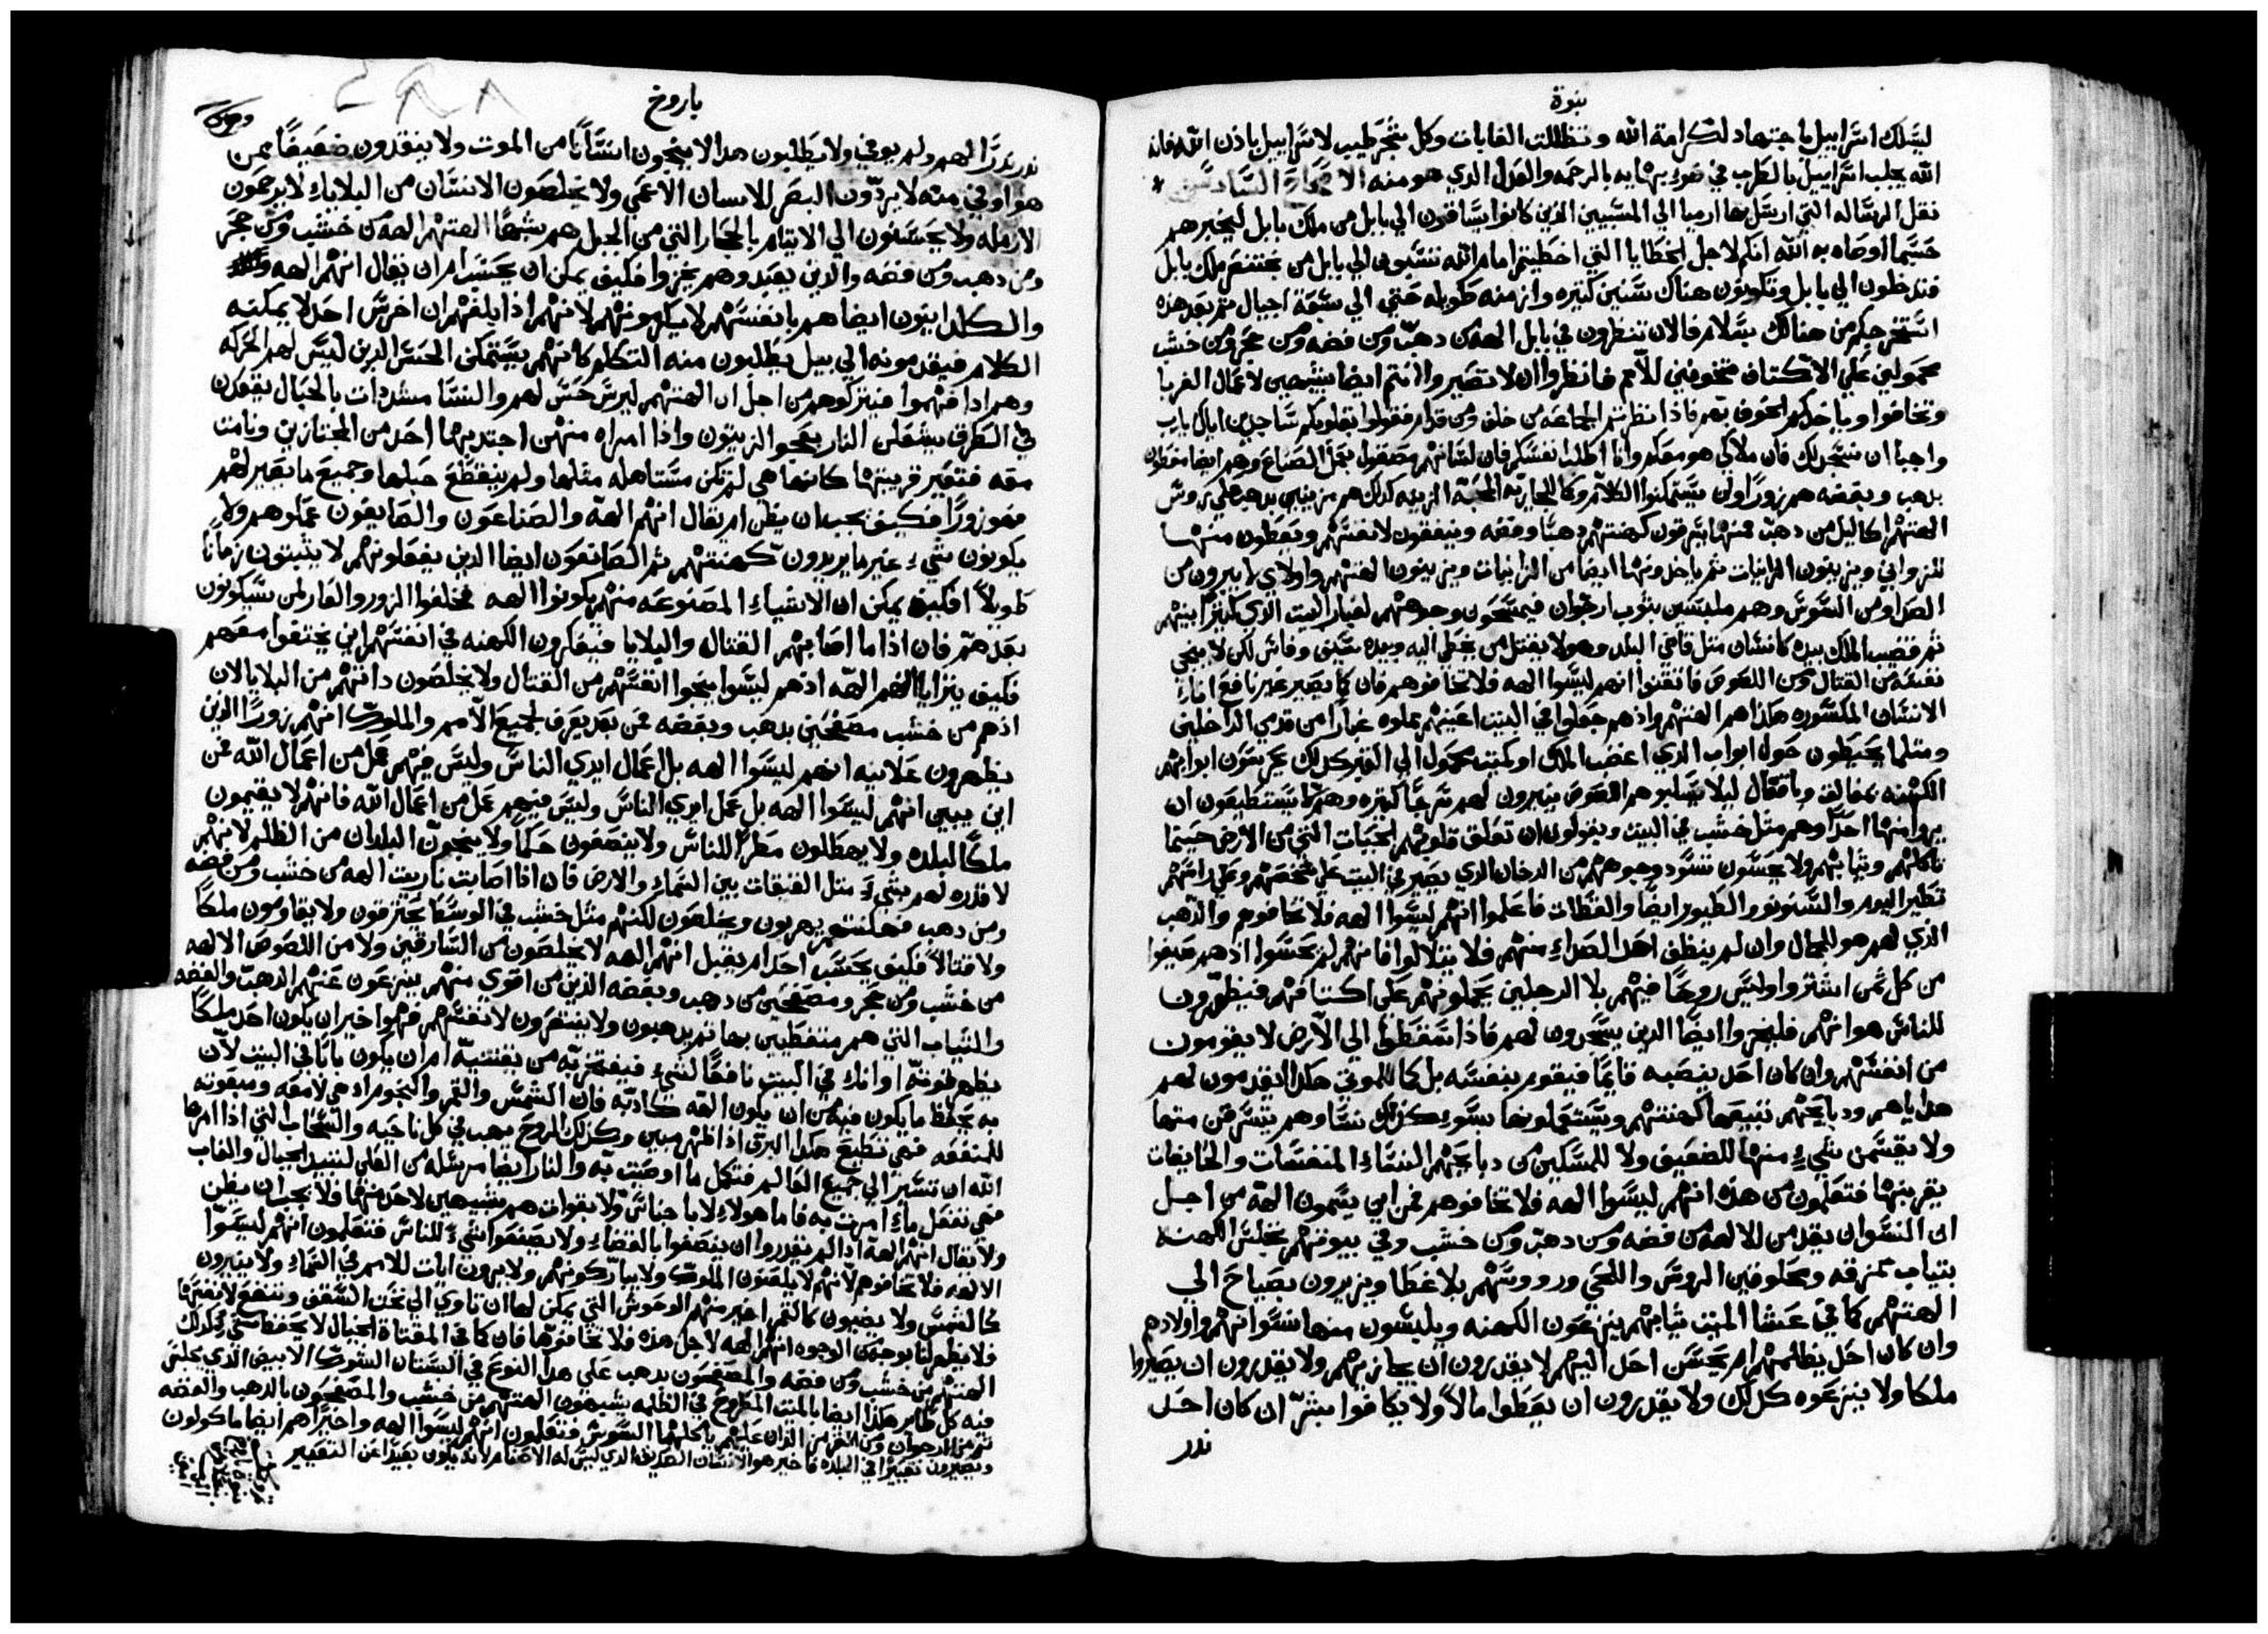 نبوة
ليسلك اسراييل باجتهاد لكرامة الله وتظللت الغابات وكل شجر طيب لاسراييل باذن الله فانه
الله يجلب اسراييل بالطرب في ضوء بهايه بالرحمه والعدل الذي هو منه الاصحاح السادس
نقل الرساله التي ارسل بها ارميا الي المسبيين الذين كانوا يساقون الي بابل من ملك بابل ليخبرهم
حسبما اوصاه به الله انكم لاجل الخطايا التي اخطيتم امام الله تسبون الي بابل من بختنصر ملك بابل
فتدخلون الي بابل وتكونون هناك سنين كتيره وازمنه طويله حتي الي سبعة اجيال تم بعد هذه
استخرجكم من هنالك بسلام فالان تنظرون في بابل الهه من دهب ومن فضه ومن حجر ومن خشب
محمولين علي الاكتاف مخوفين للامم فانظروا ان لا تصيروا انتم ايضا مشبهين لاعمال الغربا
وتخافوا وياخدكم الخوف بهم فاذا نظرتم الجماعه من خلف ومن قدام فقولوا بقلوبكم ساجدين اياك يارب
واجبا ان نسجد لك فان ملاكي هو معكم وانا اطلب انفسكم فان لسانهم مصقول بعمل الصناع وهم ايضا مغطون
بدهب وبفضه هم زورا ولن يستمكنوا الكلام وكالجاريه المحبة الزينه كدلك هم مزينين بدهب علي روس
الهتهم اكاليل من دهب منها يسرقون كهنتهم دهبا وفضه وينفقون لانفسهم ويعطون منها
للزواني ويزينون الزانيات تم ياخدونها ايضا من الزانيات ويزينون الهتهم واولاي لا يبرون من
الصدا ومن السوس وهم ملبسين بثوب ارجوان فيمسحون وجوههم لغبار البيت الذي كثيرا بينهم
تم قضيب الملك بيده كانسان متل قاضي البلد وهو لا يقتل من يخطي اليه وبيده سيف وفاس لكن لا ينجي
نفسه من القتال ومن اللصوص فاتقنوا انهم ليسوا الهه فلا تخافوهم فان كما يصير غير نافع اناء
الانسان المكسوره هكذا هم الهتهم واذ هم جعلوا في البيت اعينهم مملوه غبارا من قدمي الداخلين
ومتلما يحيطون حول ابواب الذي اغضب الملك او كميت محمول الي القبر كدلك يحرسون ابوابهم
الكهنه بمغالق وباقفال ليلا يسلبوهم اللصوص ينيرون لهم سرجا كتيره وهم لا يستطيعون ان
يروا منها احدا وهم مثل خشب في البيت ويقولون ان تعلق قلوبهم الحيات التي من الارض حسبما
تاكلهم وتيابهم ولا يحسون تسود وجوههم من الدخان الذي يصير في البيت علي شخصهم وعلي راسهم
تطير البوم والسنونو والطيور ايضا والقطات فاعلموا انهم ليسوا الهه فلا تخافوهم والدهب
الذي لهم هو للجمال وان لم ينظف احد الصداء منهم فلا يتلالوا فانهم لم يحسوا اذ هم صيغوا
من كل ثمن اشتروا وليس روحا فيهم بلا الرجلين يحملونهم علي اكتافهم فيظهرون
للناس هوانهم فليخزوا ايضا الذين يسجدون لهم فاذا سقطوا الي الارض لا يقومون
من انفسهم وان كان احد ينصبه قايما فيقوم بنفسه بل كالموتي هكذا يقدمون لهم
هداياهم ودبايحهم تبيعها كهنتهم ويستعملونها بسوء كذلك نسا وهم يتسرقن منها
ولا يقسمن شيء منها للضعيف ولا للمسكين من دبايحهم النساء المنفسات والحايضات
يقربنها فتعلمون من هذه انهم ليسوا الهه فلا تخافوهم فمن اين يسمون الهه من اجل
ان النسوان يقدمن للالهه من فضه ومن دهب ومن خشب وفي بيوتهم تجلس الكهنه
بتياب ممزقه ومحلوقين الروس واللحي ورووسهم بلا غطا ويزيرون بصياح الي
الهتهم كما في عشا الميت تيابهم ينزعون الكهنه ويلبسون منها نسوانهم واولادهم
وان كان احد يظلمهم ام يحسن احد اليهم لا يقدرون ان يجازيهم ولا يقدرون ان يصيروا
ملكا ولا ينزعوه كدلك ولا يقدرون ان يعطوا مالا ولا يكافوا بشر ان كان احد
ندر
باروخ
٤٩٨
ندر ندرا لهم ولم يوفي ولا يطلبون هدا لا ينجون انسانا من الموت ولا ينقدون ضعيفا ممن
هو اوفي منه لا يردون البصر للانسان الاعمي ولا يخلصون الانسان من البلايا لا يرحمون
الارمله ولا يحسنون الي الايتام بالحجار التي من الجبل هم يشبها الهتهم الهه من خشب ومن حجر
ومن دهب ومن فضه والذين يعبدوهم يخزوا فكيف يمكن ان يحسب ام ان يقال انهم الهه
والكلدانيون ايضا هم بانفسهم لا يكرمونهم لانهم اذا بلغهم ان اخرس احد لا يمكنه
الكلام فيقدمونه الي بيل يطلبون منه التكلم كانهم يستمكن الحس الذين ليس لهم الحركه
وهم ادا فهموا فيتركوهم من اجل ان الهتهم ليس حس لهم والنسا مشددات بالحبال يقعدن
في الطرق يشعلن النار بعجو الزيتون واذا امراه منهن اجتدبها احد من المجتازين ونامت
معه فتعير قرينتها كانها هي لم تكن مستاهله مثلها ولم ينقطع حبلها وجميع ما يصير لهم
فهو زورا فكيف يجب ان يظن ام يقال انهم الهه والصناعون والصايغون عملوهم ولا
يكونون شيء غير ما يريدون كهنتهم تم الصانعون ايضا الذين يفعلونهم لا يثبتون زمانا
طويلا افكيف يمكن ان الاشياء المصنوعه منهم يكونوا الهه فخلفوا الزور والعار لمن سيكونون
بعدهم فان اذا ما اصابهم القتال والبلايا فيفكرون الكهنه في انفسهم اين يختفوا معهم
فكيف يترايا انهم الهه اذ هم ليسوا ينجوا انفسهم من القتال ولا يخلصون داتهم من البلايا لان
اذ هم من خشب مصفحين بدهب وبفضه فمن بعد يعرف لجميع الامم والملوك انهم زورا الذين
يظهرون علانيه انهم ليسوا الهه بل اعمال ايدي الناس وليس فيهم عمل من اعمال الله فمن
اين يبين انهم ليسوا الهه بل عمل ايدي الناس وليس فيهم عمل من اعمال الله فانهم لا يقيمون
ملكا لبلده ولا يهطلون مطرا للناس ولا ينصفون حكما ولا ينجون البلدان من الظلم لانهم
لا قدره لهم بشيء متل الغيقات بين السماء والارض فان اذا اصابت نار بيت الهه من خشب ومن فضه
ومن دهب فكهنتهم يهربون ويخلصون لكنهم مثل خشب في الوسط يحترقون ولا يقاومون ملكا
ولا قتالا فكيف يحسب احد ام يقبل انهم الهه لا يخلصون من السارقين ولا من اللصوص الالهه
من خشب ومن حجر ومصفحين من دهب وبفضه الذين من اقوي منهم ينزعون عنهم الدهب والفضه
والتياب التي هم متغطيين بها تم يدهبون ولا ينتصرون لانفسهم فهوا خير ان يكون احد ملكا
يظهر قوته او اناء في البيت نافعا لشيء فيفتخر به من يقتنيه ام ان يكون بابا في البيت لان
به يحفظ ما يكون فيه من ان يكون الهه كاذبه فان الشمس والقمر والنجوم اذ هي لامعه ومبعوته
للمنفعه فهي تطيع هكدا البرق اذا ظهر مبين وكذلك الروح يهب في كل ناحيه والسحاب التي اذا امرها
الله ان تسير الي جميع العالم فتكمل ما اوصت به والنار ايضا مرسله من العلي لتبيد الجبال والغاب
فهي تفعل ماء امرت به فاما هولاء لا باجناس ولا بقوات هم مشبهين لاحد منها فلا يجب ان يظن
ولا يقال انهم الهه اذا لم يقدروا ان ينصفوا بالقضاء ولا يصنعوا شيء للناس فتعلمون انهم ليسوا
الالهه فلا تخافوهم لانهم لا يلعنون الملوك ولا يباركونهم ولا يرون ايات للامم في السماء ولا ينيرون
كالشمس ولا يضيون كالقمر اخير منهم الوحوش التي يمكن لها ان تاوي الي تحت السقف وتنفع لانفسها
فلا يظهر لنا بوجه من الوجوه انهم الهه لاجل هذه فلا تخافوها فان كما في المقتاة الخيال لا يحفظ شي كذلك
الهتهم من خشب ومن فضه والمصفحون بدهب علي هدا النوع في البستان الشوك الابيض الذي يجلس
فيه كل طاير هكذا ايضا بالميت المطروح في الظلمه يشبهون الهتهم من خشب والمصفحون بالدهب والفضه
تم من الارجوان ومن القرمز الذان عليهم ياكلهما السوس فتعلمون انهم ليسوا الهه واخيرا هم ايضا ماكولون
ويصيرون تعييرا في البلده فاخير هو الانسان الصديق الذي ليس له الاصنام لانه يكون بعيدا عن التعيير